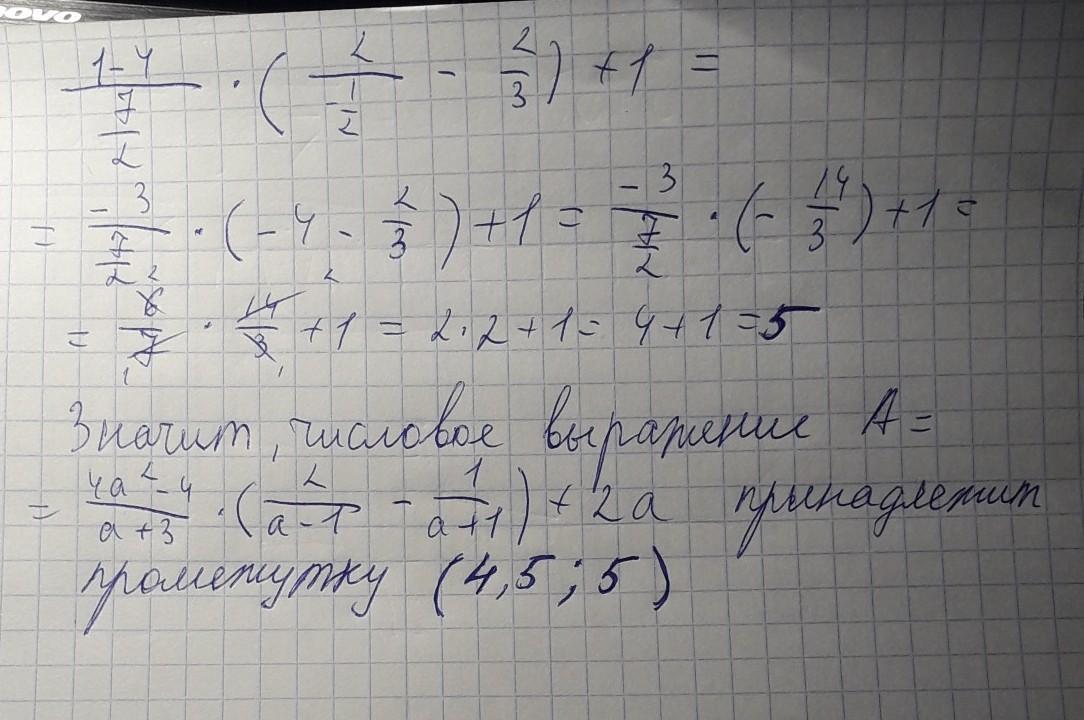 OVO
(1-4)/(7/2) · (2/(-1/2) - 2/3) + 1 =
= (-3)/(7/2) · (-4 - 2/3) + 1 = (-3)/(7/2) · (-14/3) + 1 =
= 6/7 · 14/3 + 1 = 2·2+1 = 4+1 = 5
Значит, числовое выражение A =
= (4a²-4)/(a+3) · (2/(a-1) - 1/(a+1)) + 2a принадлежит
промежутку (4,5; 5)